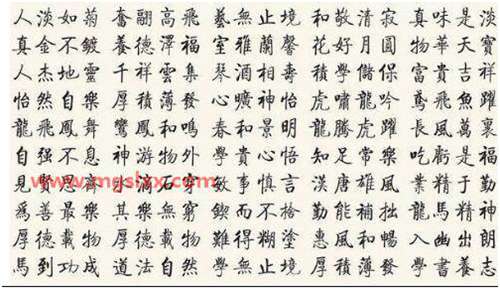 人淡如菊 奮翮高飛 藝無止境 和敬清寂 真味是淡
真金不鍍 養德澤福 室雅蘭馨 花好月圓 物華天寶
人杰地靈 千祥雲集 琴酒相壽 積學儲 富貴吉祥
怡然自樂 厚積薄發 心曠神怡 虎嘯龍吟 鳶飛魚躍
龍飛鳳舞 鸞鳳和鳴 春和景明 龍騰虎躍 長風萬裏
自强不息 神游物外 學貴心悟 知足常樂 吃虧是福
見賢思齊 敏事慎言 漢唐雄風 業精于勤
爲善最樂 其樂無窮 鍥而不捨 勤能補拙 龍馬精神
厚德載物 難得糊塗 惠風和暢 入幽出朗
馬到功成 道法自然 學無止境 厚積薄發 學書養志